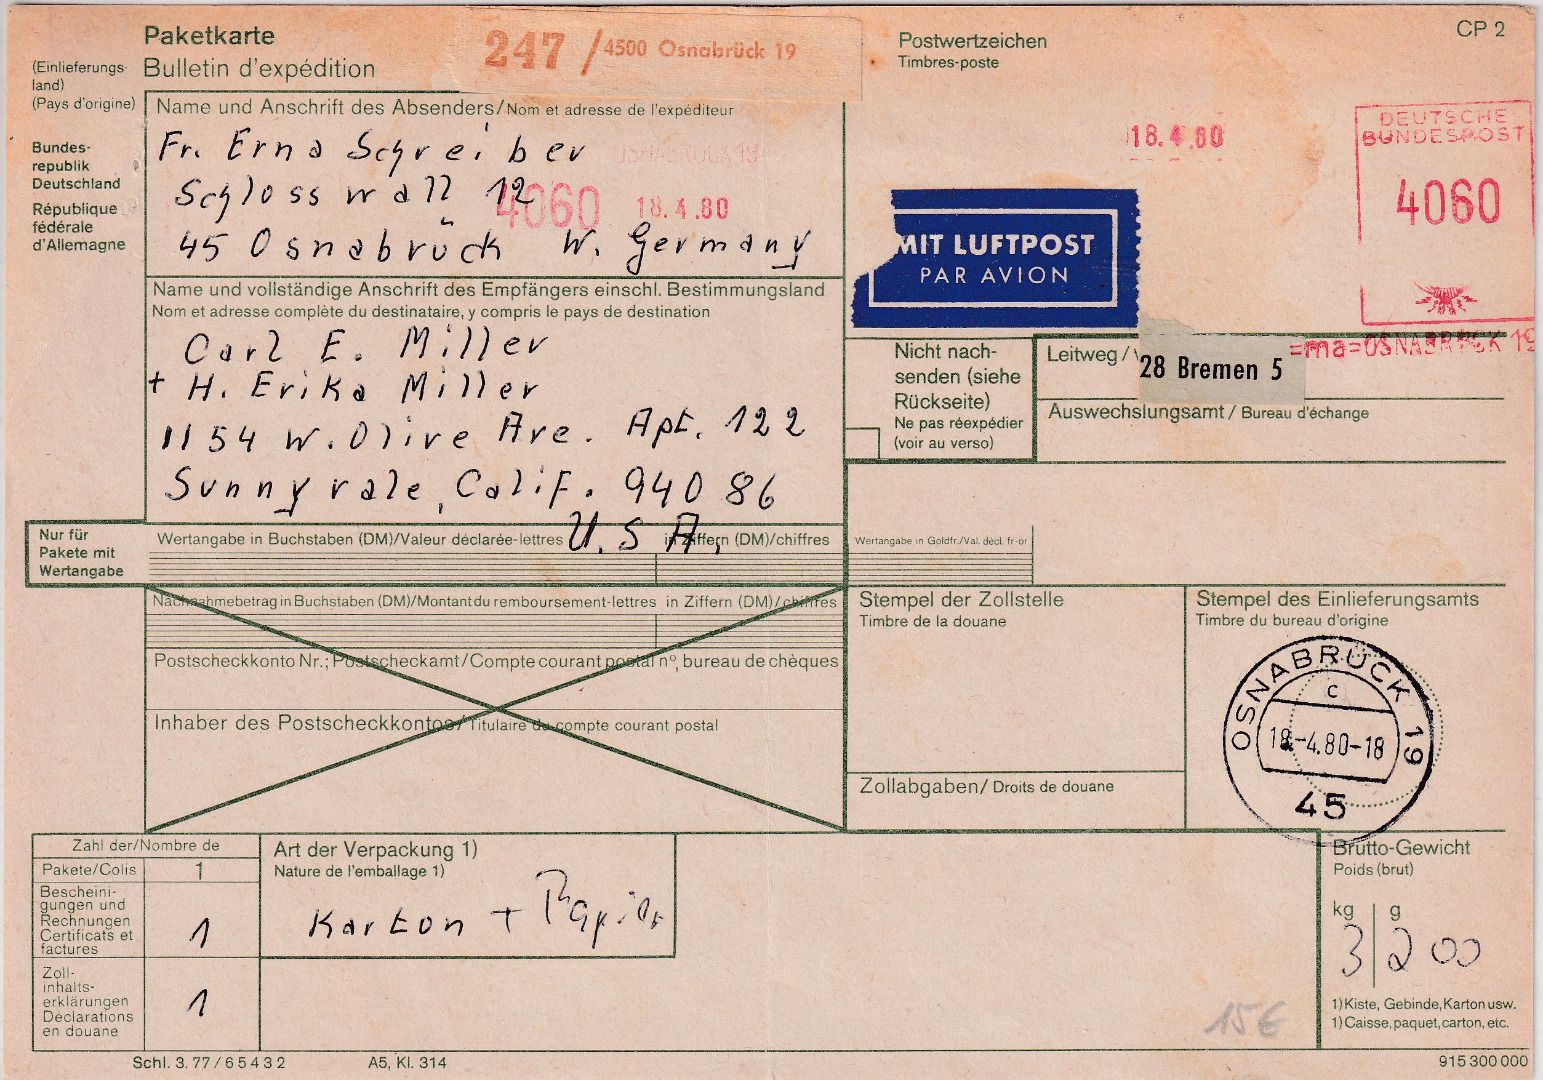 Paketkarte
Bulletin d'expédition
(Einlieferungs-
land)
(Pays d'origine)
Bundes-
republik
Deutschland
République
fédérale
d'Allemagne
247 / 4500 Osnabrück 19
Postwertzeichen
Timbres-poste
CP 2
Name und Anschrift des Absenders/Nom et adresse de l'expéditeur
Fr. Erna Schreiber
Schlosswall 12
45 Osnabrück W. Germany
OSNABRÜCK 19
4060 18.4.80
18.4.80
DEUTSCHE
BUNDESPOST
4060
=ma=OSNABRÜCK 19
MIT LUFTPOST
PAR AVION
Name und vollständige Anschrift des Empfängers einschl. Bestimmungsland
Nom et adresse complète du destinataire, y compris le pays de destination
Carl E. Miller
+ H. Erika Miller
1154 W. Olive Ave. Apt. 122
Sunnyvale, Calif. 94086
U.S.A.
Nicht nach-
senden (siehe
Rückseite)
Ne pas réexpédier
(voir au verso)
Leitweg /
28 Bremen 5
Auswechslungsamt / Bureau d'échange
Nur für
Pakete mit
Wertangabe
Wertangabe in Buchstaben (DM)/Valeur déclarée-lettres in Ziffern (DM)/chiffres
Wertangabe in Goldfr./Val. décl. fr-or
Nachnahmebetrag in Buchstaben (DM)/Montant du remboursement-lettres in Ziffern (DM)/chiffres
Postscheckkonto Nr.; Postscheckamt/Compte courant postal nº, bureau de chèques
Inhaber des Postscheckkontos/Titulaire du compte courant postal
Stempel der Zollstelle
Timbre de la douane
Zollabgaben/ Droits de douane
Stempel des Einlieferungsamts
Timbre du bureau d'origine
OSNABRÜCK 19
c
18.-4.80-18
45
Zahl der/Nombre de
Pakete/Colis 1
Bescheini-
gungen und
Rechnungen
Certificats et
factures
1
Zoll-
inhalts-
erklärungen
Déclarations
en douane
1
Art der Verpackung 1)
Nature de l'emballage 1)
Karton + Papier
Brutto-Gewicht
Poids (brut)
kg g
3 200
1) Kiste, Gebinde, Karton usw.
1) Caisse, paquet, carton, etc.
15€
Schl. 3. 77 / 6 5 4 3 2
A5, Kl. 314
915 300 000